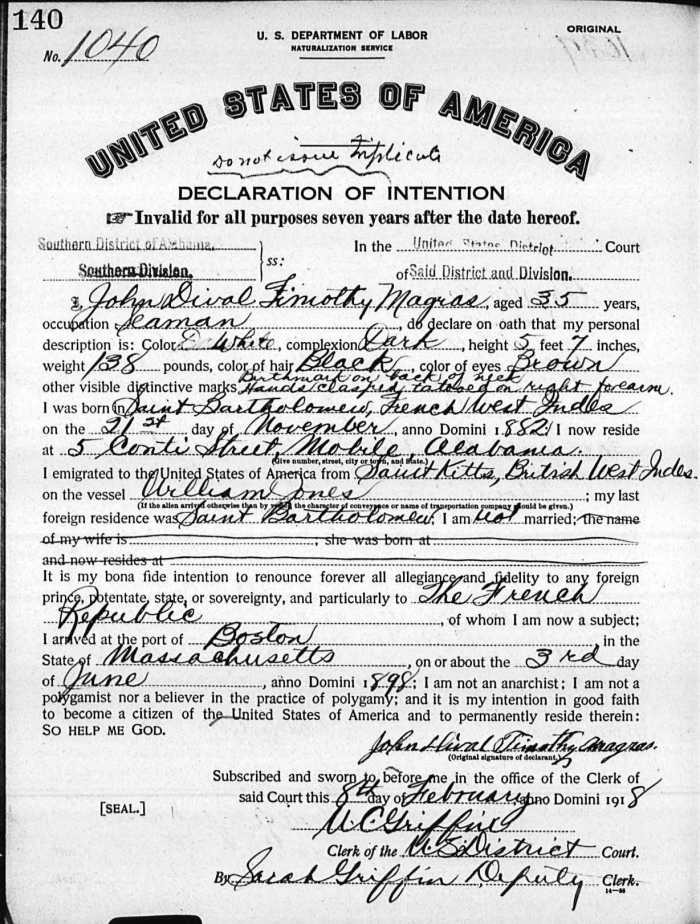 140
U. S. DEPARTMENT OF LABOR
NATURALIZATION SERVICE
ORIGINAL
No. 1040
UNITED STATES OF AMERICA
Do not issue Triplicate
DECLARATION OF INTENTION
☞ Invalid for all purposes seven years after the date hereof.
Southern District of Alabama, In the United States District Court
Southern Division. ss: of Said District and Division.
I, John Dival Timothy Magras, aged 35 years,
occupation Seaman, do declare on oath that my personal
description is: Color White, complexion Dark, height 5 feet 7 inches,
weight 138 pounds, color of hair Black, color of eyes Brown
Birthmark on back of neck
other visible distinctive marks Hands clasped, tatooed on right forearm.
I was born in Saint Bartholomew, French West Indes
on the 21st day of November, anno Domini 1882; I now reside
at 5 Conti Street, Mobile, Alabama.
(Give number, street, city or town, and State.)
I emigrated to the United States of America from Saint Kitts, British West Indes.
on the vessel William Jones; my last
(If the alien arrived otherwise than by vessel, the character of conveyance or name of transportation company should be given.)
foreign residence was Saint Bartholomew; I am not married; the name
of my wife is; she was born at
and now resides at
It is my bona fide intention to renounce forever all allegiance and fidelity to any foreign
prince, potentate, state, or sovereignty, and particularly to The French
Republic, of whom I am now a subject;
I arrived at the port of Boston, in the
State of Massachusetts, on or about the 3rd day
of June, anno Domini 1898; I am not an anarchist; I am not a
polygamist nor a believer in the practice of polygamy; and it is my intention in good faith
to become a citizen of the United States of America and to permanently reside therein:
SO HELP ME GOD.
John Dival Timothy Magras.
(Original signature of declarant.)
Subscribed and sworn to before me in the office of the Clerk of
said Court this 8th day of February anno Domini 1918
[SEAL.]
U C Griffin
Clerk of the U S District Court.
By Sarah Griffin Deputy Clerk.